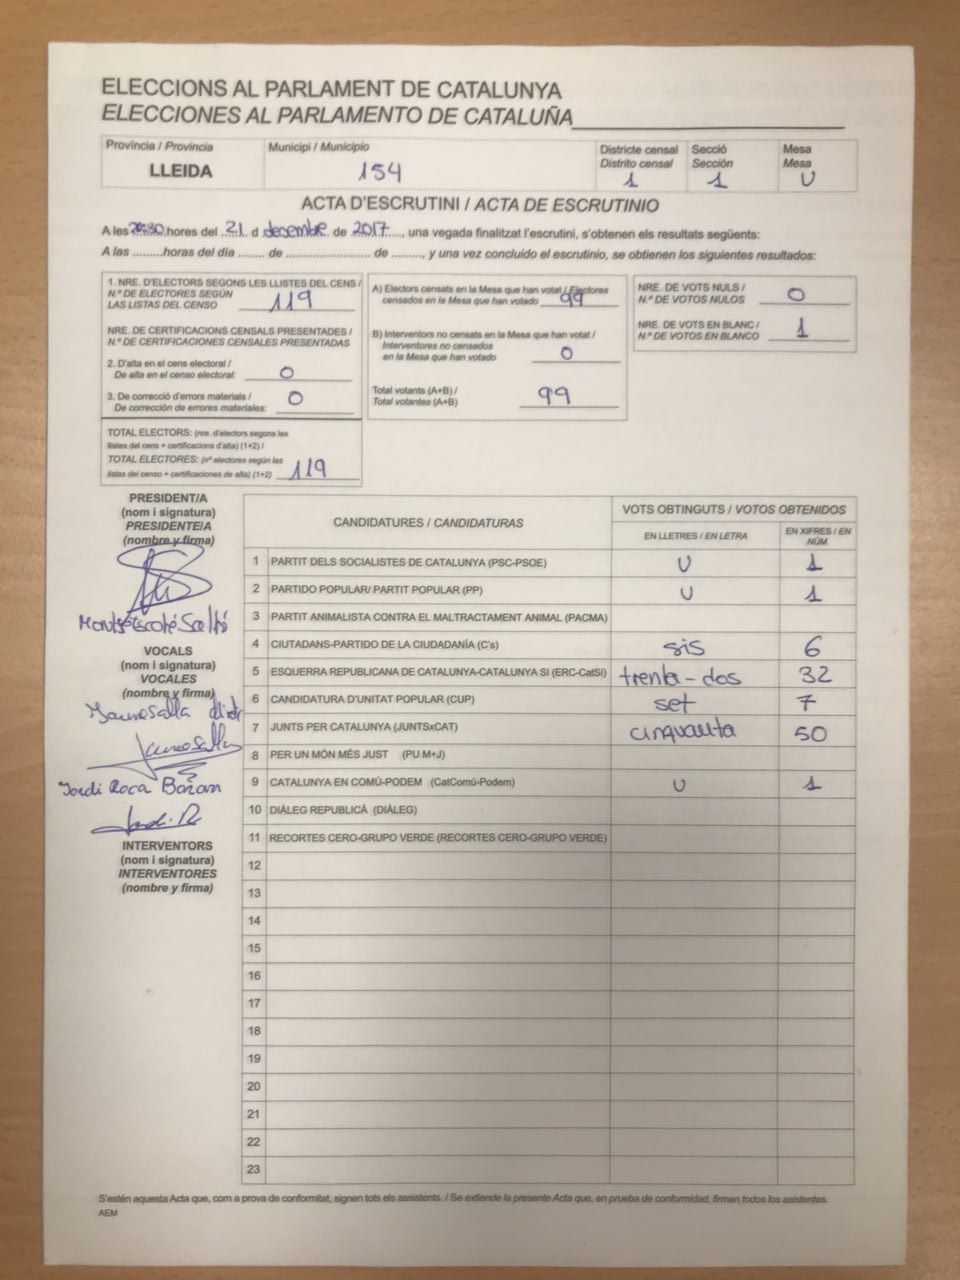 ELECCIONS AL PARLAMENT DE CATALUNYA
ELECCIONES AL PARLAMENTO DE CATALUÑA
Província / Provincia
LLEIDA
Municipi / Municipio
154
Districte censal
Distrito censal
1
Secció
Sección
1
Mesa
Mesa
U
ACTA D'ESCRUTINI / ACTA DE ESCRUTINIO
A les hores del 21 d desembre de 2017, una vegada finalitzat l'escrutini, s'obtenen els resultats següents:
A las .........horas del día ....... de ...................... de ........, y una vez concluido el escrutinio, se obtienen los siguientes resultados:
1. NRE. D'ELECTORS SEGONS LES LLISTES DEL CENS /
N.º DE ELECTORES SEGÚN
LAS LISTAS DEL CENSO 119
NRE. DE CERTIFICACIONS CENSALS PRESENTADES /
N.º DE CERTIFICACIONES CENSALES PRESENTADAS
2. D'alta en el cens electoral /
De alta en el censo electoral: 0
3. De correcció d'errors materials /
De corrección de errores materiales: 0
TOTAL ELECTORS: (nre. d'electors segons les
llistes del cens + certificacions d'alta) (1+2) /
TOTAL ELECTORES: (nº electores según las
listas del censo + certificaciones de alta) (1+2) 119
A) Electors censats en la Mesa que han votat / Electores
censados en la Mesa que han votado 99
B) Interventors no censats en la Mesa que han votat /
Interventores no censados
en la Mesa que han votado 0
Total votants (A+B) /
Total votantes (A+B) 99
NRE. DE VOTS NULS /
N.º DE VOTOS NULOS 0
NRE. DE VOTS EN BLANC /
N.º DE VOTOS EN BLANCO 1
PRESIDENT/A
(nom i signatura)
PRESIDENTE/A
(nombre y firma)
VOCALS
(nom i signatura)
VOCALES
(nombre y firma)
Jordi Roca
INTERVENTORS
(nom i signatura)
INTERVENTORES
(nombre y firma)
CANDIDATURES / CANDIDATURAS
VOTS OBTINGUTS / VOTOS OBTENIDOS
EN LLETRES / EN LETRA
EN XIFRES / EN NÚM.
1 PARTIT DELS SOCIALISTES DE CATALUNYA (PSC-PSOE) U 1
2 PARTIDO POPULAR/ PARTIT POPULAR (PP) U 1
3 PARTIT ANIMALISTA CONTRA EL MALTRACTAMENT ANIMAL (PACMA)
4 CIUTADANS-PARTIDO DE LA CIUDADANÍA (C's) sis 6
5 ESQUERRA REPUBLICANA DE CATALUNYA-CATALUNYA SI (ERC-CatSI) trenta-dos 32
6 CANDIDATURA D'UNITAT POPULAR (CUP) set 7
7 JUNTS PER CATALUNYA (JUNTSxCAT) cinquanta 50
8 PER UN MÓN MÉS JUST (PU M+J)
9 CATALUNYA EN COMÚ-PODEM (CatComú-Podem) U 1
10 DIÀLEG REPUBLICÀ (DIÀLEG)
11 RECORTES CERO-GRUPO VERDE (RECORTES CERO-GRUPO VERDE)
12
13
14
15
16
17
18
19
20
21
22
23
S'estén aquesta Acta que, com a prova de conformitat, signen tots els assistents. / Se extiende la presente Acta que, en prueba de conformidad, firman todos los asistentes.
AEM